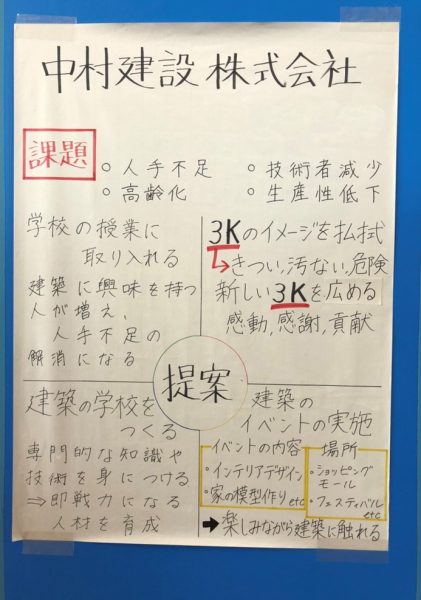 中村建設 株式会社
課題
○ 人手不足
○ 高齢化
○ 技術者減少
○ 生産性低下
学校の授業に
取り入れる
建築に興味を持つ
人が増え、
人手不足の
解消になる
3Kのイメージを払拭
↳きつい,汚ない,危険
新しい3Kを広める
感動,感謝,貢献
提案
建築の学校を
つくる
専門的な知識や
技術を身につける
⇒即戦力になる
人材を育成
建築の
イベントの実施
イベントの内容
・インテリアデザイン
・家の模型作り etc
場所
・ショッピング
モール
・フェスティバル
etc
➡楽しみながら建築に触れる